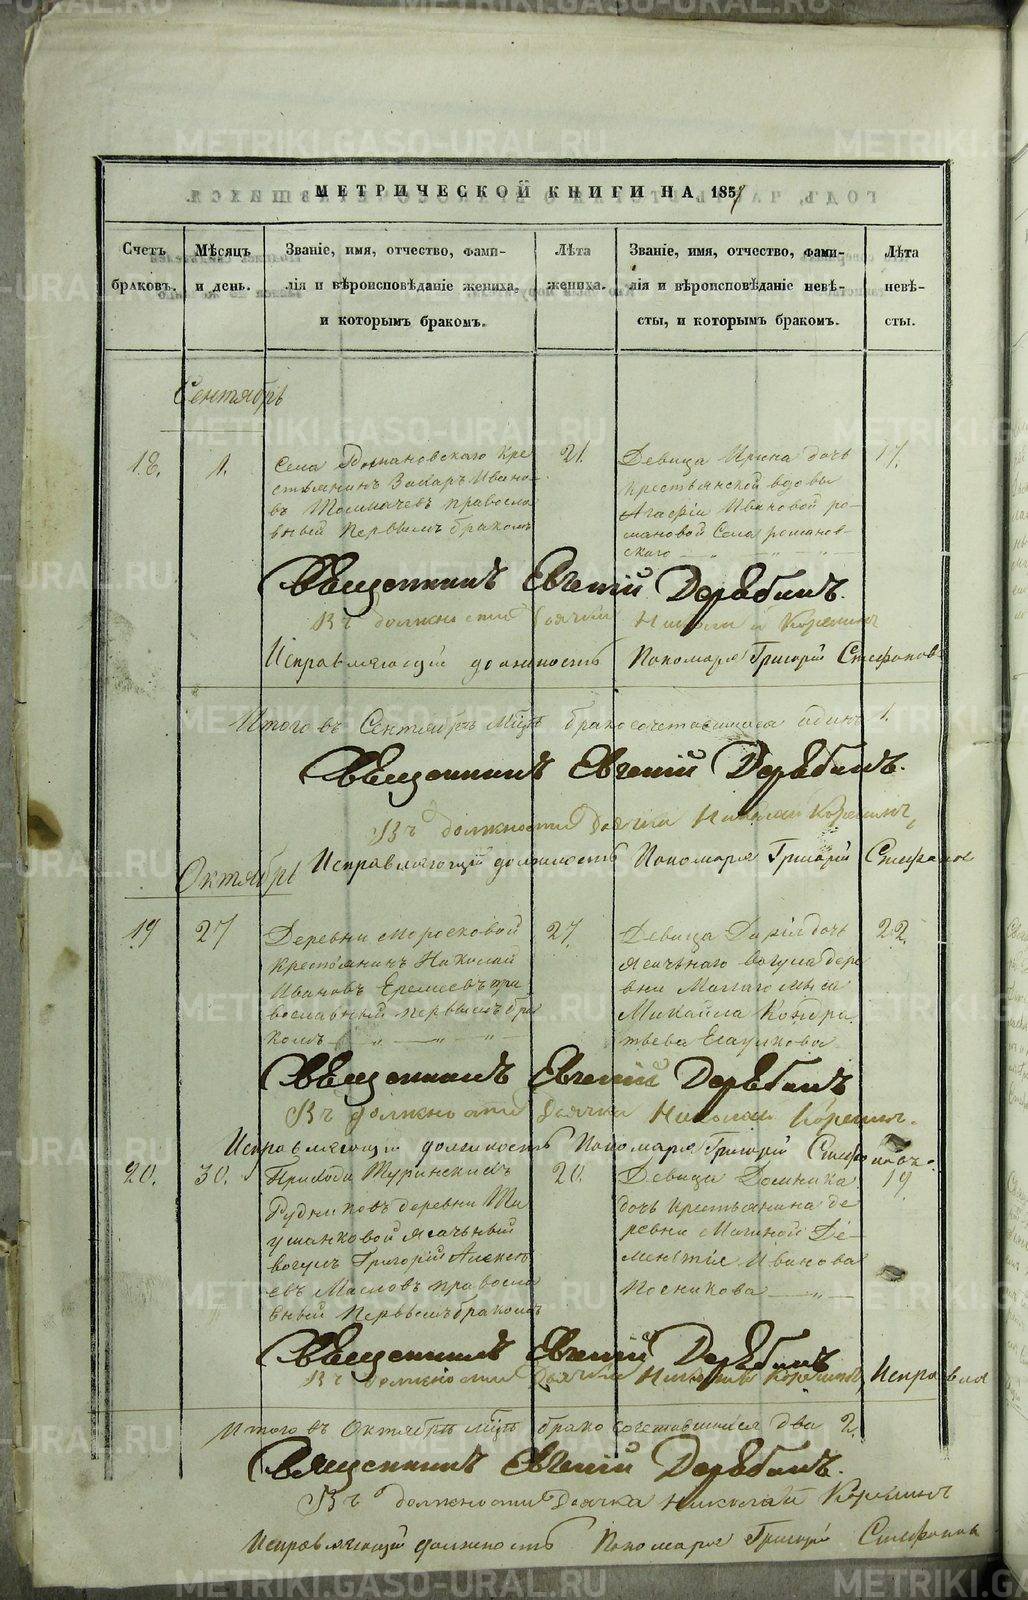 МЕТРИЧЕСКОЙ КНИГИ НА 185
Счетъ браковъ.
Мѣсяцъ и день.
Званіе, имя, отчество, фами-
лія и вѣроисповѣданіе жениха,
и которымъ бракомъ.
Лѣта жениха.
Званіе, имя, отчество, фами-
лія и вѣроисповѣданіе невѣ-
сты, и которымъ бракомъ.
Лѣта невѣ-
сты.
Сентябрь
18. 1.
Села Романовскаго Кре
стьянинъ Захаръ Ивано
въ Толмачевъ правосла
вный первымъ бракомъ
21.
Девица Ирина дочь
крестьянской вдовы
Агафіи Ивановой ро-
мановой Села романов-
скаго
17.
Священникъ Евгеній Дерябинъ.
Въ должности Дьячка Николай Корелинъ
Исправляющій должность Пономаря Григорій Стефановъ
Итого въ Сентябрѣ мцѣ бракосочетавшихся одинъ 1.
Священникъ Евгеній Дерябинъ.
Въ должности Дьячка Николай Корелинъ
Исправляющій должность Пономаря Григорій Стефанов
Октябрь
19 27
Деревни Моросковой
крестьянинъ Николай
Ивановъ Еремеевъ пра
вославный первымъ бра
комъ
27.
Девица Дарія дочь
ясачнаго вогула дере
вни
Михайла Кондра
тьева
22.
Священникъ Евгеній Дерябинъ
Въ должности Дьячка Николай Корелинъ.
Исправляющій должность Пономаря Григорій Стефановъ.
20. 30.
Прихода Туринскихъ
Рудниковъ деревни Ми
тяшанковой ясачный
вогулъ Григорій Алексѣ
евъ Масловъ правосла
вный первымъ бракомъ
20.
Девица Домника
дочь крестьянина де
ревни Матиной Де-
ментія Иванова
Посникова
19.
Священникъ Евгеній Дерябинъ
Въ должности Дьячка Николай Корелинъ, Исправля
Итого въ Октябрѣ мцѣ бракосочетавшихся два 2.
Священникъ Евгеній Дерябинъ.
Въ должности Дьячка Николай Корелинъ
Исправляющій должность Пономаря Григорій Стефанов
METRIKI.GASO-URAL.RU